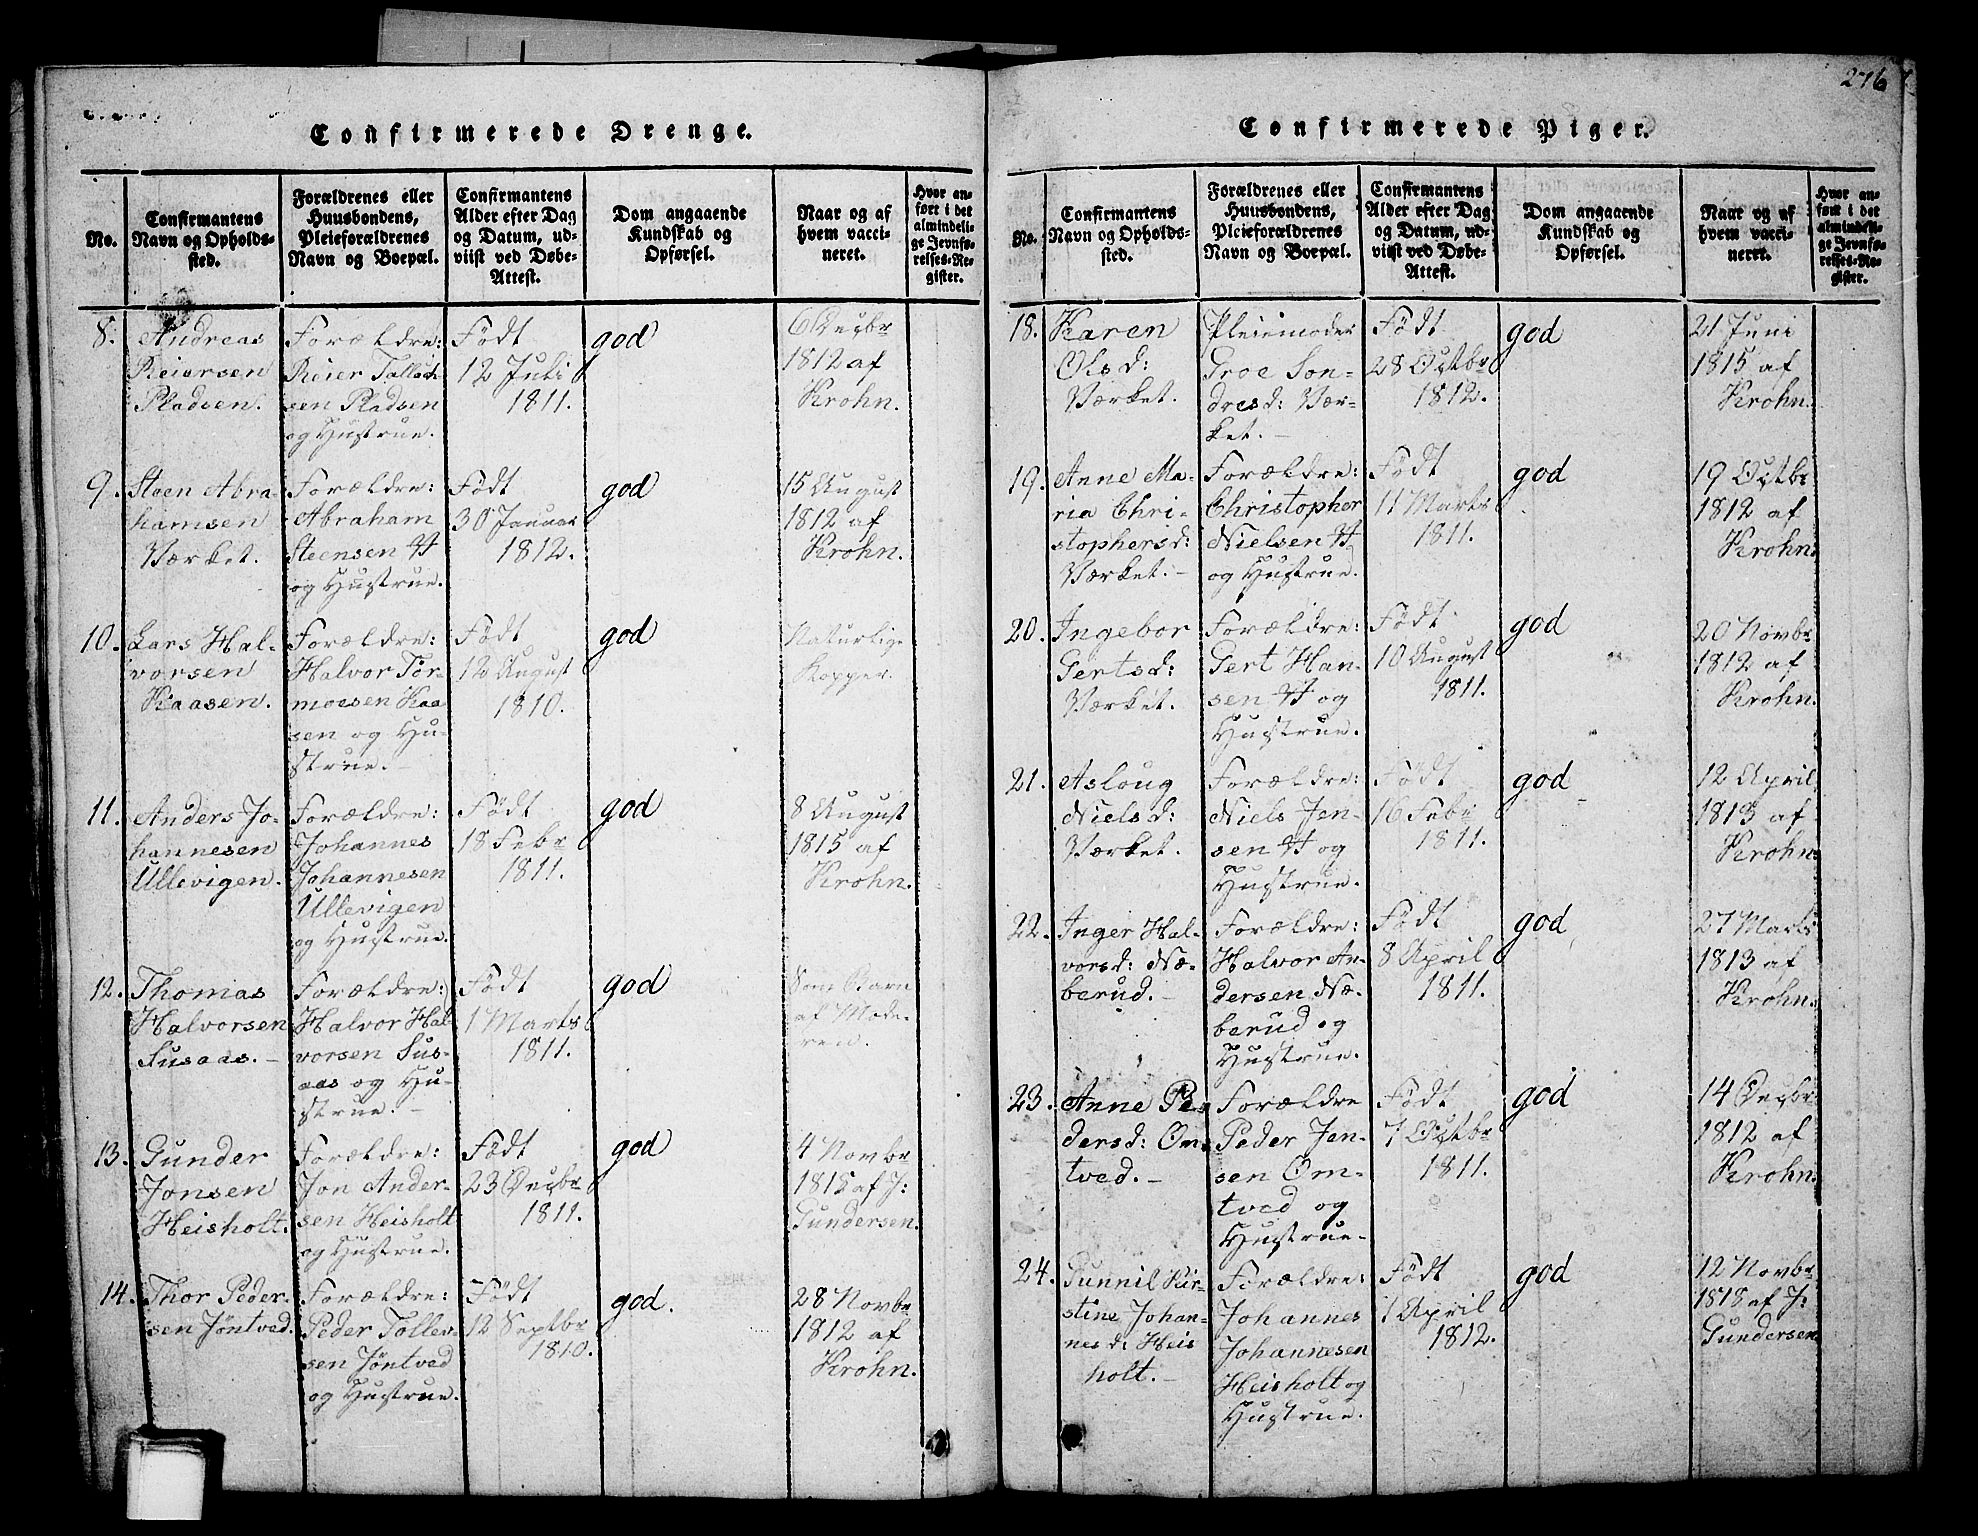 Confirmerede Drenge.
No.
Confirmantens
Navn og Opholds-
sted.
Forældrenes eller
Huusbondens,
Pleieforældrenes
Navn og Boepæl.
Confirmantens
Alder efter Dag
og Datum, ud-
viist ved Døbe-
Attest.
Dom angaaende
Kundskab og
Opførsel.
Naar og af
hvem vacci-
neret.
Hvor an-
ført i det
almindeli-
ge Jevnfø-
relses-Re-
gister.
8.
Andreas
Reiersen
Pladsen.
Forældre:
Reier Tallach-
sen Pladsen
og Hustrue.
Født
12 Juli
1811.
god
6 Decbr
1812 af
Krohn.
9.
Steen Abra-
hamsen
Værket.
Forældre:
Abraham
Steensen W
og Hustrue.
Født
30 Januar
1812.
god
15 August
1812 af
Krohn.
10.
Lars Hal-
vorsen
Kaasen.
Forældre:
Halvor Tor-
moesen Kaa
sen og Hu-
strue.
Født
12 August
1810.
god
Naturlige
Kopper.
11.
Anders Jo-
hannesen
Ullevigen.
Forældre:
Johannes
Johannesen
Ullevigen
og Hustrue.
Født
18 Febr
1811.
god
8 August
1815 af
Krohn.
12.
Thomas
Halvorsen
Susaas.
Forældre:
Halvor Hal-
vorsen Sus-
aas og Hu-
strue.
Født
1 Marts
1811.
god
Som Barn
af Mode-
ren.
13.
Gunder
Jonsen
Heisholt.
Forældre:
Jon Ander-
sen Heisholt
og Hustrue.
Født
23 Decbr
1811.
god
4 Novbr
1815 af J:
Gundersen.
14.
Thor Peder-
sen Jöntved.
Forældre:
Peder Tollev-
sen Jöntved
og Hustrue.
Født
12 Septbr
1810.
god.
28 Novbr
1812 af
Krohn.
276
Confirmerede Piger.
No.
Confirmantens
Navn og Opholds-
sted.
Forældrenes eller
Huusbondens,
Pleieforældrenes
Navn og Boepæl.
Confirmantens
Alder efter Dag
og Datum, ud-
viist ved Døbe-
Attest.
Dom angaaende
Kundskab og
Opførsel.
Naar og af
hvem vacci-
neret.
Hvor an-
ført i det
almindeli-
ge Jevnfø-
relses-Re-
gister.
18.
Karen
Olsd:
Værket.
Pleiemoder
Groe Son-
dresd: Vær-
ket.
Født
28 Octbr
1812.
god
21 Juni
1815 af
Krohn.
19.
Anne Ma-
ria Chri-
stophersd:
Værket.
Forældre:
Christopher
Nielsen W
og Hustrue.
Født
11 Marts
1811.
god
19 Octbr
1812 af
Krohn.
20.
Ingebor
Gertsd:
Værket.
Forældre:
Gert Han-
sen W og
Hustrue.
Født
10 August
1811.
god
20 Novbr
1812 af
Krohn.
21.
Asloug
Nielsd:
Værket.
Forældre:
Niels Jen-
sen W og
Hustrue.
Født
16 Febr
1811.
god
12 April
1813 af
Krohn.
22.
Inger Hal-
vorsd: Næ-
berud.
Forældre:
Halvor An-
dersen Næ-
berud og
Hustrue.
Født
8 April
1811.
god
27 Marts
1813 af
Krohn.
23.
Anne Pe-
dersd: Om-
tved.
Forældre
Peder Jen-
sen Om-
tved og
Hustrue.
Født
7 Octbr
1811.
god
14 Decbr
1812 af
Krohn.
24.
Gunnil Kir-
stine Johan-
nesd: Heis
holt.
Forældre:
Johannes
Johannesen
Heisholt og
Hustrue.
Født
1 April
1812.
god
12 Novbr
1818 af J:
Gundersen